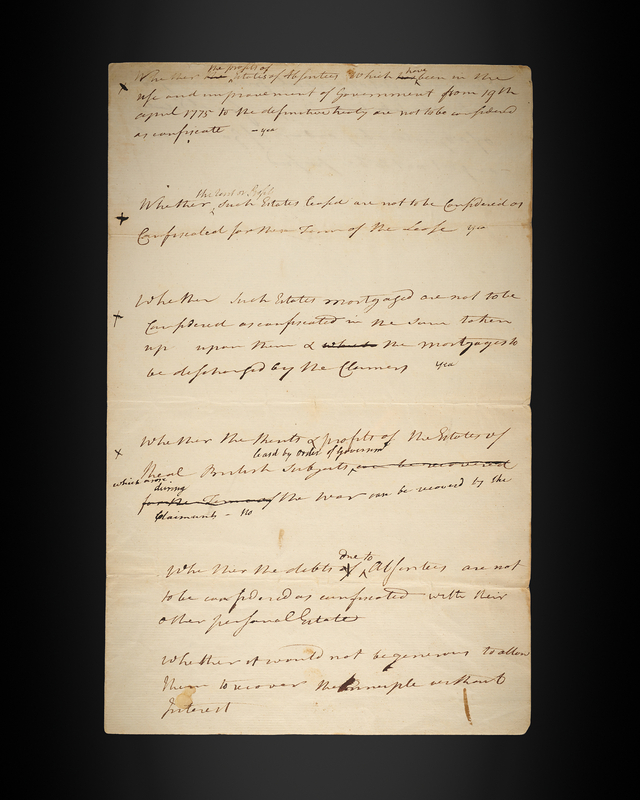 the profits of have
Whether the Estates of Absentees which has been in the
use and improvement of Government from 19th
april 1775 to the definitive treaty are not to be considered
as confiscate - yea
the rent or
Whether such Estates leas'd are not to be Considered as
Confiscated for the Term of the Lease yea
Whether such Estates mortgaged are not to be
Considered as confiscated in the sum taken
up upon them & the mortgages to
be discharged by the Claimers yea
Whether the Rents & profits of the Estates of
leas'd by order of Governm
Real British Subjects can be recovered
which arose during
for the Term of the war can be recover'd by the
Claimants - no
due to
Whether the debts of Absentees are not
to be considered as confiscated with their
other personal Estate
Whether it would not be generous to allow
them to recover the principle without
Interest